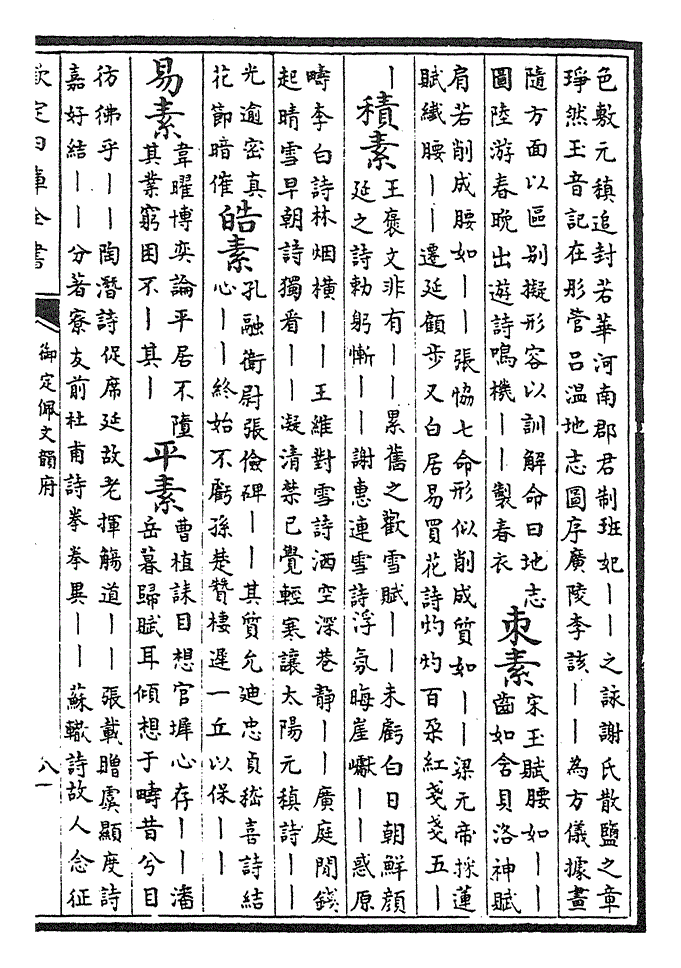 色敷元稹追封若華河南郡君制班妃——之詠謝氏散鹽之章
琤然玉音記在彤管呂溫地志圖序廣陵李該——為方儀據畫
隨方面以區别擬形容以訓解命曰地志
圖陸游春晚出遊詩鳴機——製春衣
束素
宋玉賦腰如——
齒如含貝洛神賦
肩若削成腰如——張協七命形似削成質如——梁元帝採蓮
賦纖腰——遷延顧步又白居易買花詩灼灼百朶紅戔戔五
—
積素
王褒文非有——累舊之歡雪賦——未虧白日朝鮮顔
延之詩勅躬慚——謝惠連雪詩浮氛晦崖巘——惑原
疇李白詩林烟横——王維對雪詩洒空深巷静——廣庭閒錢
起晴雪早朝詩獨看——凝清禁已覺輕寒讓太陽元稹詩——
光逾密真
花節暗催
皓素
孔融衛尉張儉碑——其質允迪忠貞嵇喜詩結
心——終始不虧孫楚贊棲遲一丘以保——
易素
韋曜博奕論平居不墮
其業窮困不—其—
平素
曹植誄目想官墀心存——潘
岳暮歸賦耳傾想于疇昔兮目
彷彿乎——陶潛詩促席延故老揮觴道——張載贈虞顯度詩
嘉好結——分著寮友前杜甫詩拳拳異——蘇轍詩故人念征
欽定四庫全書
御定佩文韻府
八一